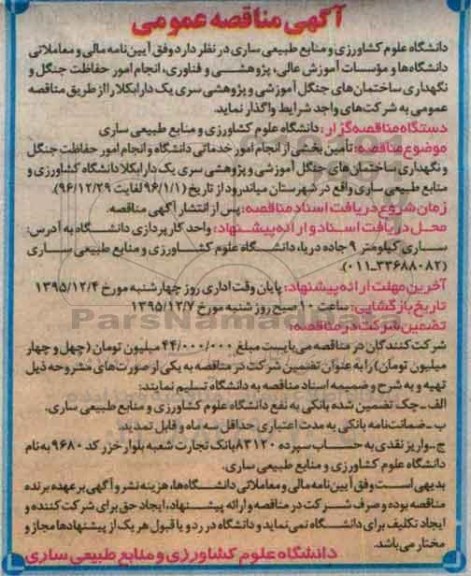 آگهی مناقصه عمومی
دانشگاه علوم کشاورزی و منابع طبیعی ساری در نظر دارد وفق آیین‌نامه مالی و معاملاتی
دانشگاه‌ها و مؤسسات آموزش عالی، پژوهشی و فناوری، انجام امور حفاظت جنگل و
نگهداری ساختمان‌های جنگل آموزشی و پژوهشی سری یک دارابکلا را از طریق مناقصه
عمومی به شرکت‌های واجد شرایط واگذار نماید.
دستگاه مناقصه‌گزار: دانشگاه علوم کشاورزی و منابع طبیعی ساری
موضوع مناقصه: تأمین بخشی از انجام امور خدماتی دانشگاه و انجام امور حفاظت جنگل
و نگهداری ساختمان‌های جنگل آموزشی و پژوهشی سری یک دارابکلا دانشگاه کشاورزی و
منابع طبیعی ساری واقع در شهرستان میاندرود از تاریخ (۹۶/۱/۱ لغایت ۹۶/۱۲/۲۹).
زمان شروع دریافت اسناد مناقصه: پس از انتشار آگهی مناقصه.
محل دریافت اسناد و ارائه پیشنهاد: واحد کارپردازی دانشگاه به آدرس:
ساری کیلومتر ۹ جاده دریا، دانشگاه علوم کشاورزی و منابع طبیعی ساری
(۰۱۱-۳۳۶۸۸۰۸۲).
آخرین مهلت ارائه پیشنهاد: پایان وقت اداری روز چهارشنبه مورخ ۱۳۹۵/۱۲/۴
تاریخ بازگشایی: ساعت ۱۰ صبح روز شنبه مورخ ۱۳۹۵/۱۲/۷
تضمین شرکت در مناقصه:
شرکت کنندگان در مناقصه می‌بایست مبلغ ۴۴/۰۰۰/۰۰۰ میلیون تومان (چهل و چهار
میلیون تومان) را به عنوان تضمین شرکت در مناقصه به یکی از صورت‌های مشروحه ذیل
تهیه و به شرح و ضمیمه اسناد مناقصه به دانشگاه تسلیم نمایند:
الف-چک تضمین شده بانکی به نفع دانشگاه علوم کشاورزی و منابع طبیعی ساری.
ب-ضمانت‌نامه بانکی به مدت اعتباری حداقل سه ماه و قابل تمدید.
ج-واریز نقدی به حساب سپرده ۸۳۱۲۰ بانک تجارت شعبه بلوار خزر کد ۹۶۸۰ به نام
دانشگاه علوم کشاورزی و منابع طبیعی ساری.
بدیهی است وفق آیین‌نامه مالی و معاملاتی دانشگاه‌ها، هزینه نشر و آگهی بر عهده برنده
مناقصه بوده و صرف شرکت در مناقصه و ارائه پیشنهاد، ایجاد حق برای شرکت کننده و
ایجاد تکلیف برای دانشگاه نمی‌نماید و دانشگاه در رد و یا قبول هر یک از پیشنهادها مجاز و
مختار می‌باشد.
دانشگاه علوم کشاورزی و منابع طبیعی ساری